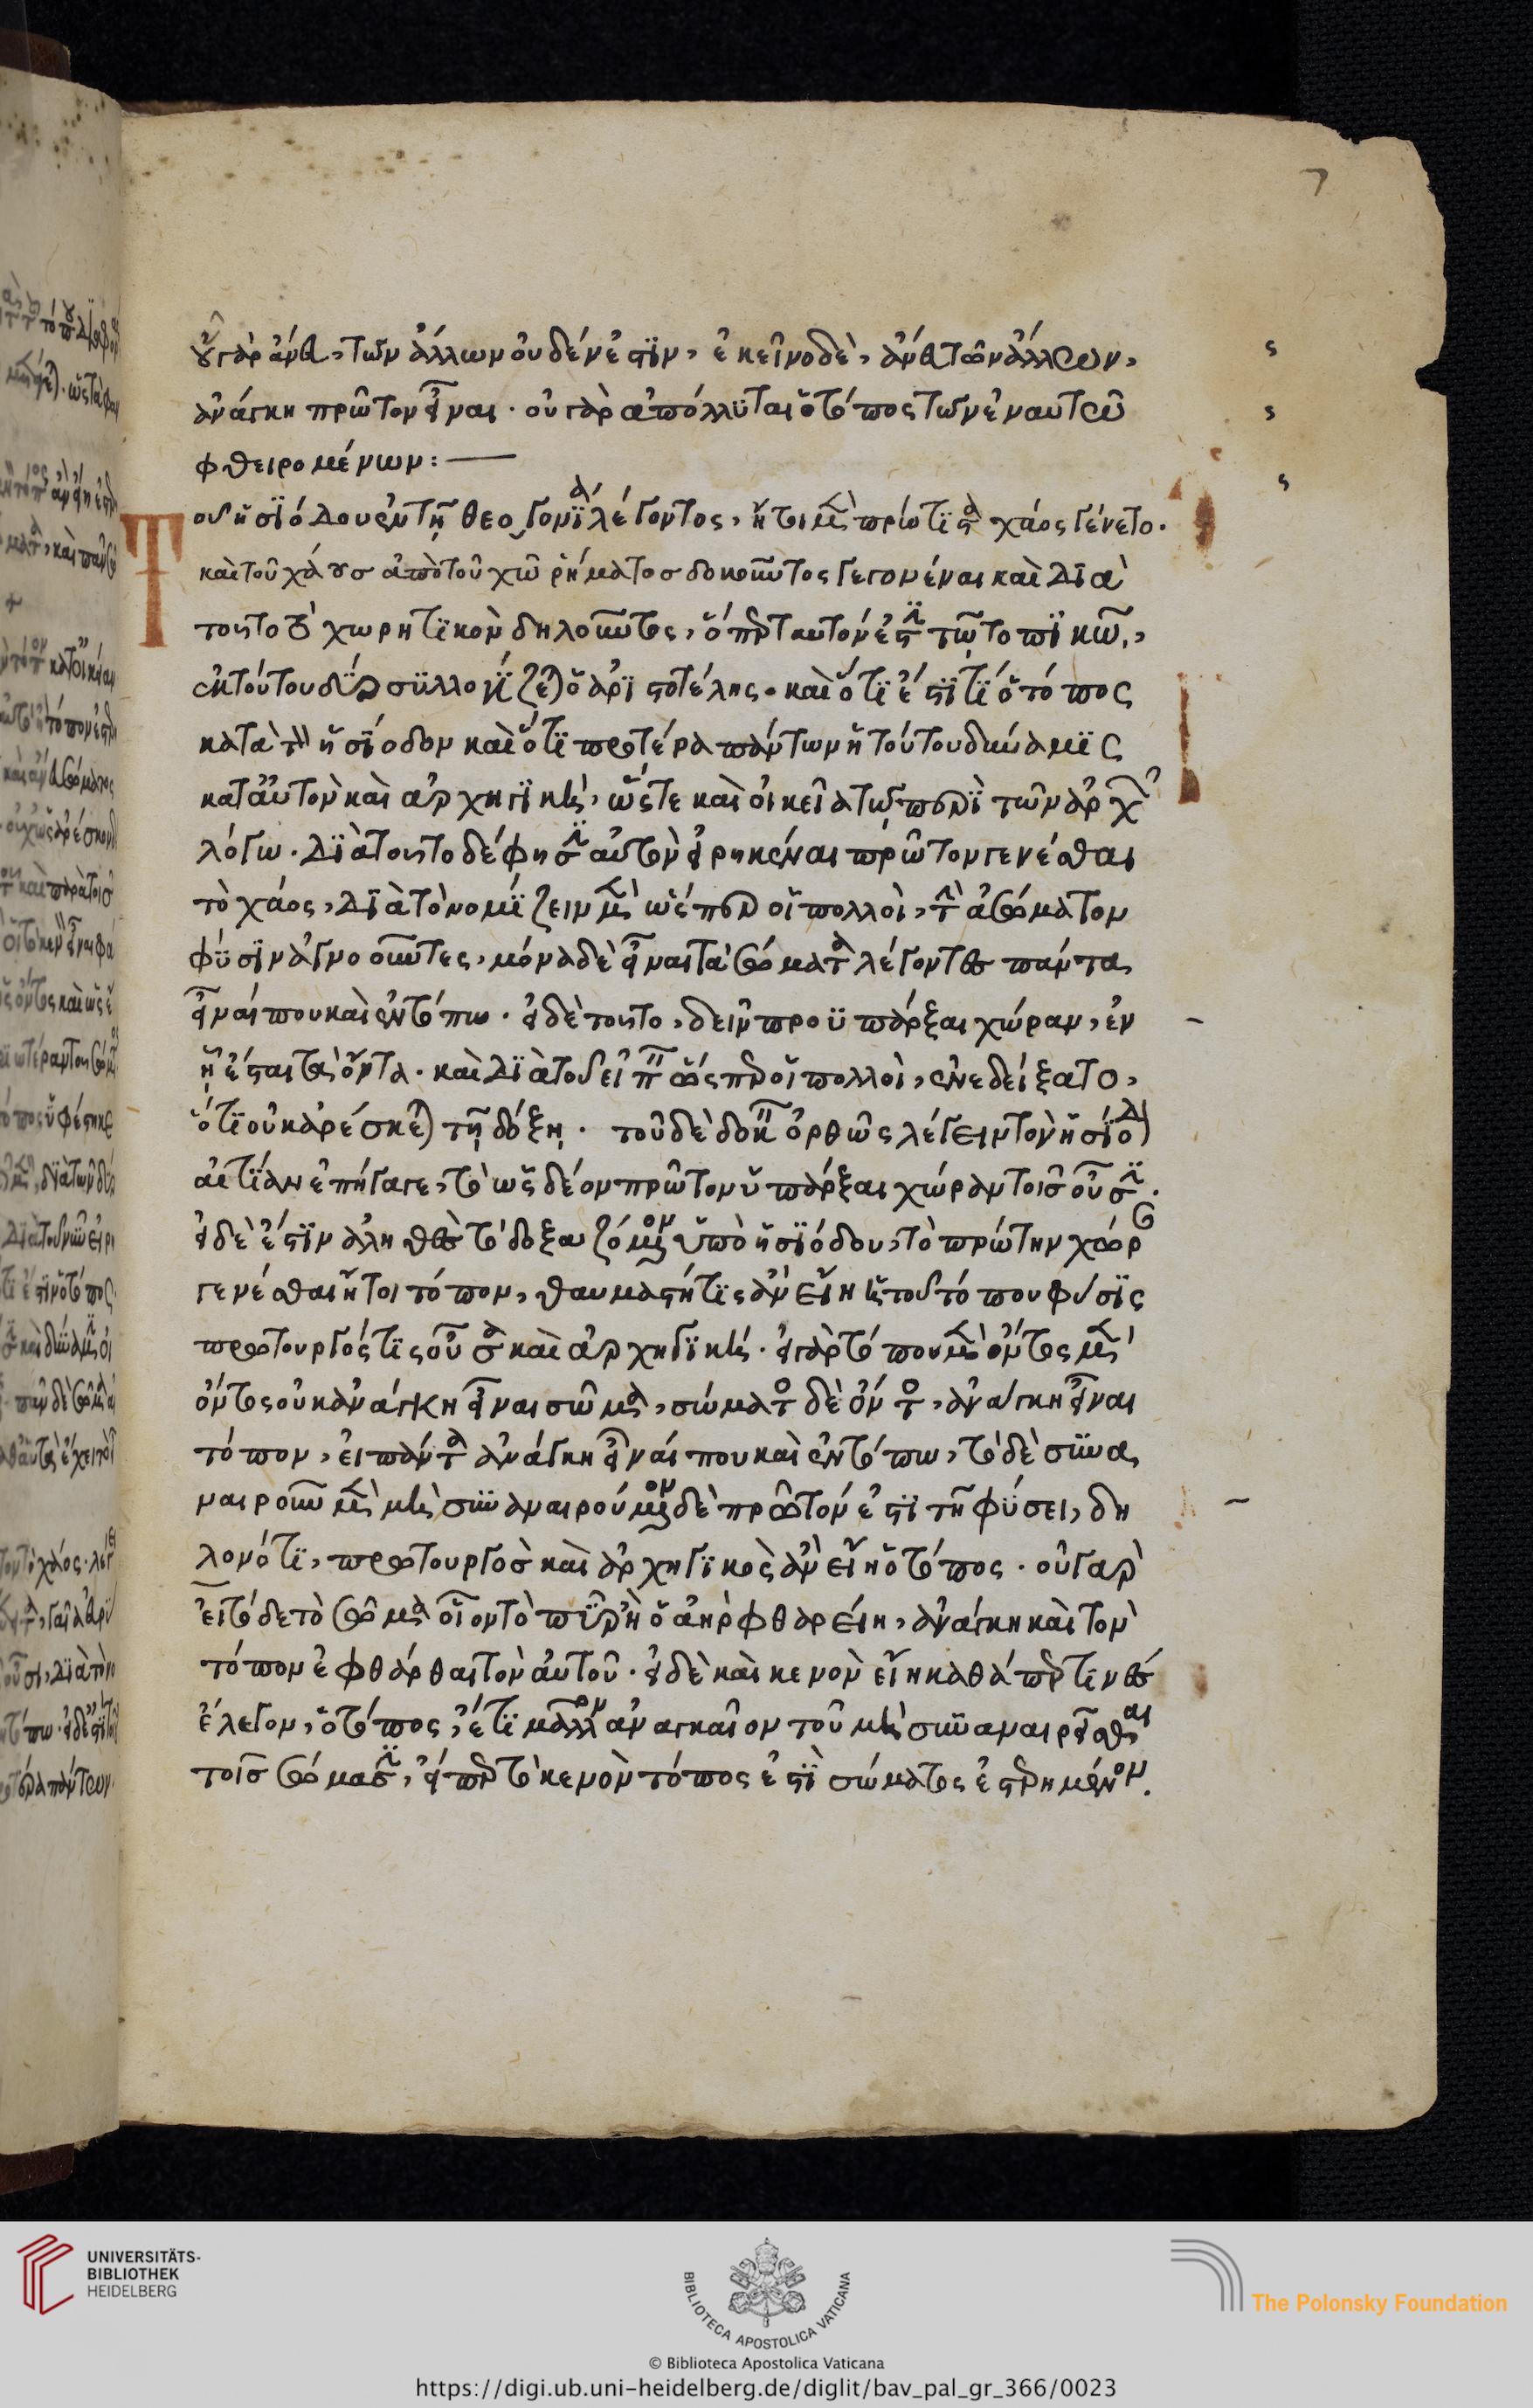 7
οὗ γὰρ ἄνευ, τῶν ἄλλων οὐδέν ἐστϊν, ἐκεῖνο δὲ, ἄνευ τῶν ἄλλων,
ἀνάγκη πρῶτον εἶναι· οὐ γὰρ ἀπόλλϋται ὁ τόπος τῶν ἐν αυτῶ
φθειρομένων:—
Τοῦ ἡσϊόδου ἐν τῆ θεογονίᾳ λέγοντος, ἤτοι μὲν πρώτϊστα χάος γένετο.
καὶ τοῦ χάους ἀπὸ τοῦ χωρήματος δοκοῦντος γεγονέναι καὶ διὰ
τοῦτο τὸ χωρητϊκὸν δηλοῦντος, ὅπερ ταυτόν ἐστϊ τῶ τοπϊκῶ,
ἐκ τούτου δύο σϋλλογίζεται ὁ ἀρϊστοτέλης. καὶ ὅτϊ ἐστί τϊ ὁ τόπος
κατὰ τὸν ἡσίοδον καὶ ὅτϊ προτέρα πάντων ἡ τούτου δύναμϊς
κατ αὐτὸν καὶ ἀρχηγϊκὴ, ὥστε καὶ οἰκεῖα τῶ περὶ τῶν ἀρχῶν
λόγω. διὰ τοῦτο δέ φησϊν αὐτὸν εἰρηκέναι πρῶτον γενέσθαι
τὸ χάος, διὰ τὸ νομίζειν μὲν ὥσπερ οἱ πολλοὶ, τὴν ἀσώματον
φύσϊν ἀγνοοῦντες, μόνα δὲ εἶναι τὰ σώματα λέγοντες πάντα
εἶναί που καὶ ἐν τόπω. εἰ δὲ τοῦτο, δεῖν προϋπάρξαι χώραν, ἐν
ἧ ἔσται τὰ ὄντα. καὶ διὰ τοῦ εἰπεῖν ὥσπερ οἱ πολλοὶ, ἐνεδείξατο,
ὅτϊ οὐκ ἀρέσκεται τῆ δόξη. τοῦ δὲ δοκεῖν ὀρθῶς λέγειν τὸν ἡσίοδον
αἰτϊαν ἐπήγαγε, τὸ ὡς δέον πρῶτον ὑπάρξαι χώραν τοῖς οὖσϊ.
εἰ δὲ ἐστϊν ἀληθὲς τὸ δοξαζόμενον ὑπὸ ἡσϊόδου, τὸ πρώτην χώραν
γενέσθαι ἤτοι τόπον, θαυμαστή τϊς ἂν εἴη ἡ τοῦ τόπου φύσϊς
πρωτουργός τϊς οὖσα καὶ ἀρχηγϊκή. εἰ γὰρ τόπου μὲν ὄντος μὲν
ὄντος οὐκ ἀνάγκη εἶναι σῶμα, σώματος δὲ ὄντος, ἀνάγκη εἶναι
τόπον, εἰ πάντα ἀνάγκη εἶναί που καὶ ἐν τόπω, τὸ δὲ σϋνα
ναιροῦν μὲν μὴ σϋναναιρούμενον δὲ πρῶτόν ἐστϊ τῆ φύσει, δη
λονότϊ, πρωτουργὸς καὶ ἀρχηγϊκὸς ἂν εἴη ὁ τόπος. οὐ γὰρ
εἰ τόδε τὸ σῶμα οἷον τὸ πῦρ ἢ ὁ ἀὴρ φθαρείη, ἀνάγκη καὶ τὸν
τόπον ἐφθάρθαι τὸν αὐτοῦ. εἰ δὲ καὶ κενὸν εἴη καθάπερ τινὲς
ἔλεγον, ὁ τόπος, ἔτϊ μᾶλλον ἀναγκαῖον τοῦ μὴ σϋναναιρεῖσθαι
τοῖς σώμασϊν, εἴπερ τὸ κενὸν τόπος ἐστϊ σώματος ἐστερημένον.
UNIVERSITÄTS-
BIBLIOTHEK
HEIDELBERG
BIBLIOTECA APOSTOLICA VATICANA
The Polonsky Foundation
© Biblioteca Apostolica Vaticana
https://digi.ub.uni-heidelberg.de/diglit/bav_pal_gr_366/0023